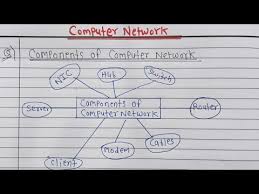 Computer Network
Q) Components of Computer Network
NIC
Hub
Switch
Server
Components of
Computer Network
Router
Client
Modem
Cables